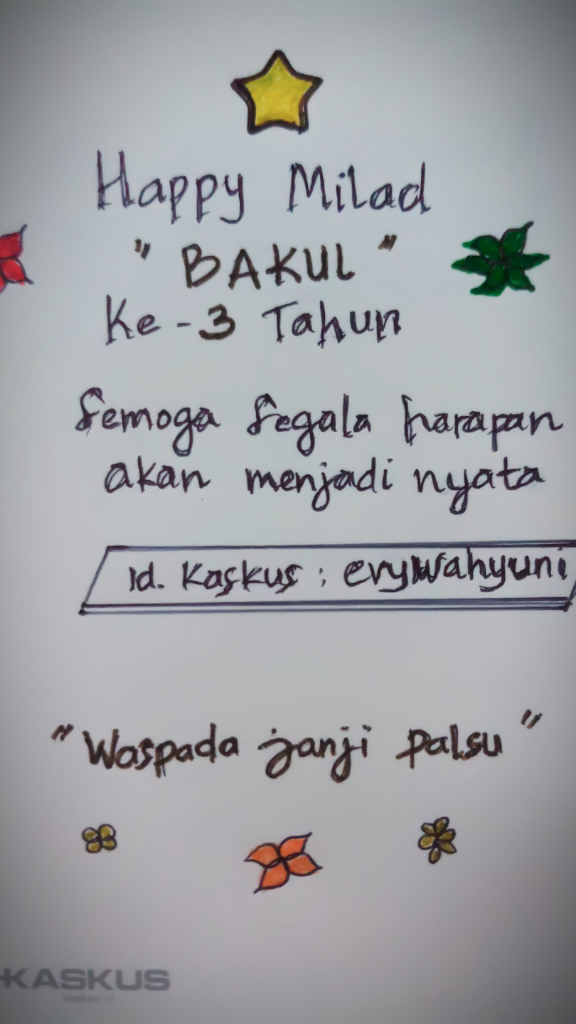 Happy Milad
" BAKUL "
Ke - 3 Tahun
Semoga Segala harapan
akan menjadi nyata
Id. Kaskus : evywahyuni
"Waspada janji palsu"
KASKUS
kaskus.id